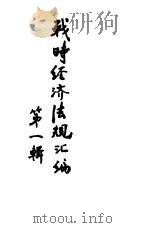 戰时经济法规汇编
第一輯
mtoou.info